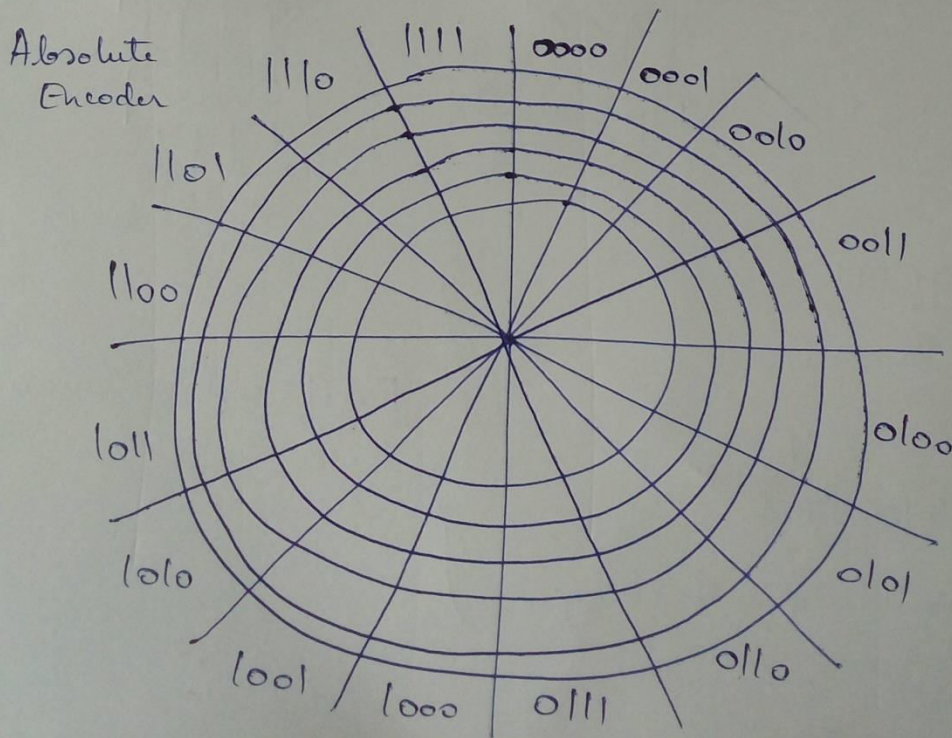 Absolute
Encoder
0000
0001
0010
0011
0100
0101
0110
0111
1000
1001
1010
1011
1100
1101
1110
1111